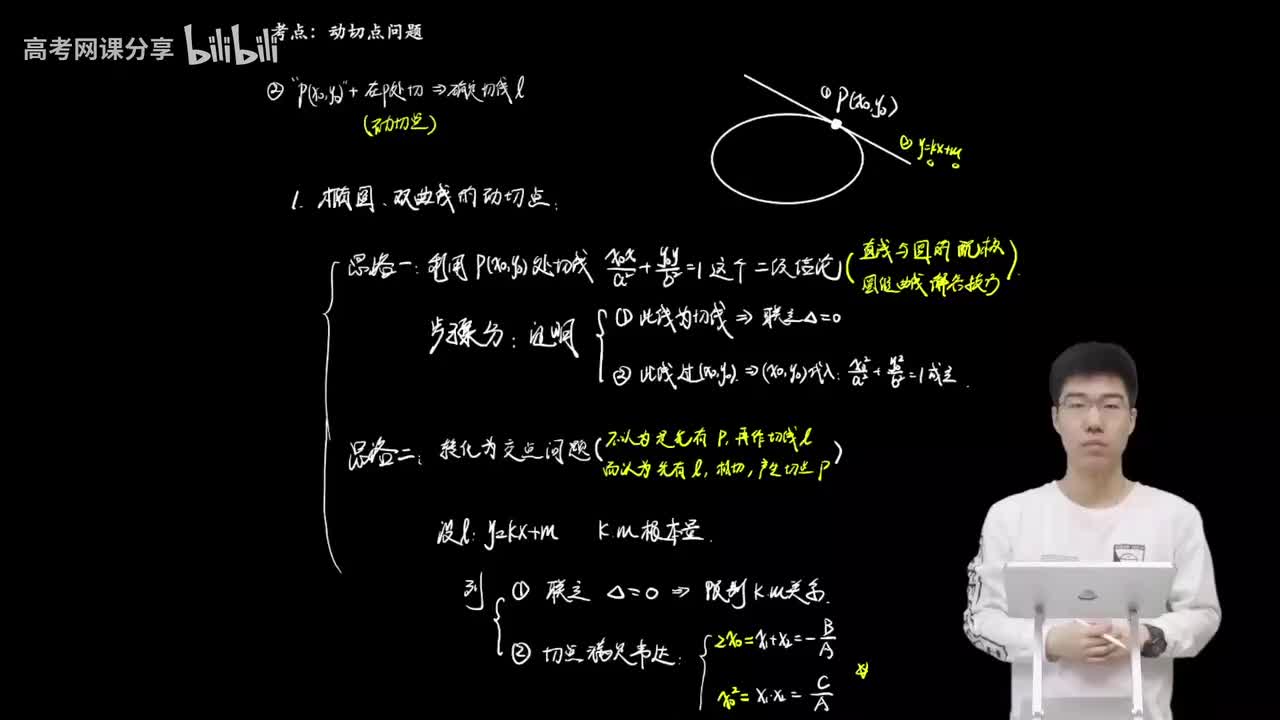 高考网课分享 bilibili
考点：动切点问题
② "P(x₀,y₀)" + 在P处切 ⇒ 确定切线 l
(动切点)
① P(x₀,y₀)
② y=kx+m
1. 椭圆、双曲线的动切点：
思路一：利用 P(x₀,y₀) 处切线 x₀x/a² + y₀y/b² = 1 这个二级结论 (直线与圆的配极
圆锥曲线解答技巧)
步骤分：证明 { ① 此线为切线 ⇒ 联立 Δ=0
② 此线过(x₀,y₀) ⇒ (x₀,y₀)代入：x₀²/a² + y₀²/b² = 1 成立.
思路二：转化为交点问题 (不认为是先有 P, 再作切线 l
而认为先有 l, 相切, 产生切点 P)
设 l: y=kx+m k.m 根本量.
列 { ① 联立 Δ=0 ⇒ 得到 k.m关系.
② 切点满足韦达: { 2x₀ = x₁+x₂ = -B/A
x₀² = x₁·x₂ = C/A